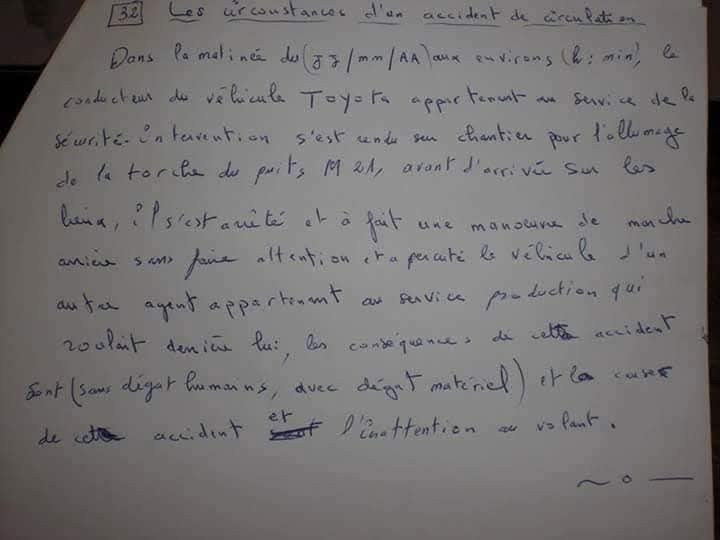 32 Les circonstances d'un accident de circulation
Dans la matinée du (JJ/mm/AA) aux environs (h: min), le
conducteur du véhicule Toyota appartenant au service de la
sécurité-intervention s'est rendu sur chantier pour l'allumage
de la torche du puits M 21, avant d'arrivée sur les
lieux, il s'est arrêté et à fait une manœuvre de marche
arrière sans faire attention et a percuté le véhicule d'un
autre agent appartenant au service production qui
roulait derrière lui, les conséquences de cette accident
sont (sans dégat humains, avec dégat matériel) et la cause
de cette accident et l'inattention au volant.